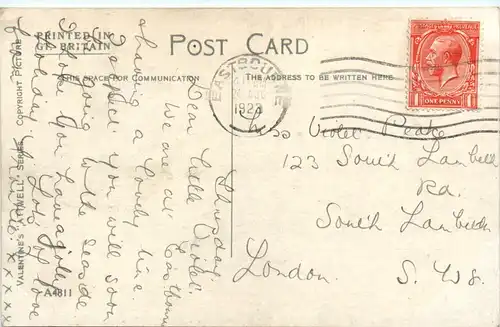 PRINTED IN
GT. BRITAIN
POST CARD
THIS SPACE FOR COMMUNICATION
THE ADDRESS TO BE WRITTEN HERE
VALENTINE'S "ATTWELL" SERIES
COPYRIGHT PICTURE
A4811
EASTBOURNE
1923
ONE PENNY
Thursday
Dear Little Violet.
We are at Eastbourne
having a lovely time.
I expect you will soon
be going to the seaside
I hope you have a jolly
holiday. Lots of love
from
x x x x
Miss Violet Peake
123 South Lambeth
Rd.
South Lambeth
London S. W8.